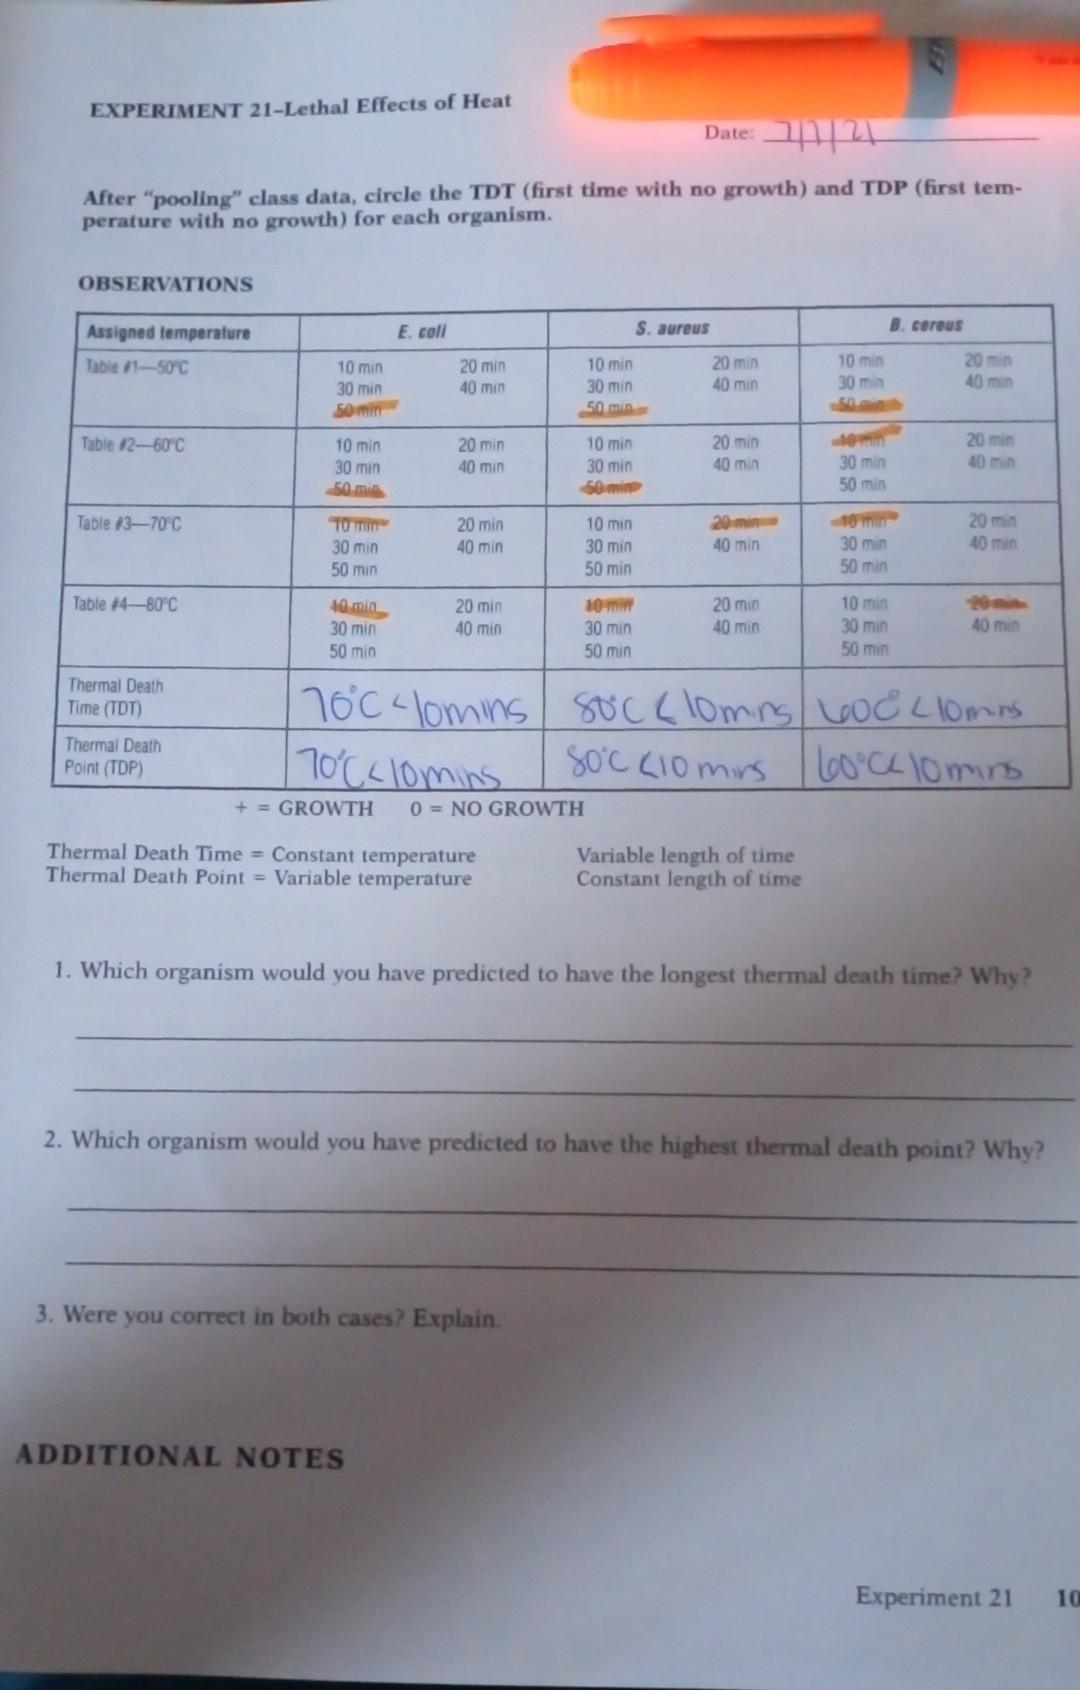 EXPERIMENT 21–Lethal Effects of Heat
Date: 7/7/21
After “pooling” class data, circle the TDT (first time with no growth) and TDP (first tem-
perature with no growth) for each organism.
OBSERVATIONS
Assigned temperature E. coli S. aureus B. cereus
Table #1—50°C 10 min 20 min 10 min 20 min 10 min 20 min
30 min 40 min 30 min 40 min 30 min 40 min
50 min 50 min 50 min
Table #2—60°C 10 min 20 min 10 min 20 min 10 min 20 min
30 min 40 min 30 min 40 min 30 min 40 min
50 min 50 min 50 min
Table #3—70°C 10 min 20 min 10 min 20 min 10 min 20 min
30 min 40 min 30 min 40 min 30 min 40 min
50 min 50 min 50 min
Table #4—80°C 10 min 20 min 10 min 20 min 10 min 20 min
30 min 40 min 30 min 40 min 30 min 40 min
50 min 50 min 50 min
Thermal Death
Time (TDT) 70°C <10mins 80°C < 10mins 60C° < 10mins
Thermal Death
Point (TDP) 70°C<10mins 80°C <10 mins 60°C< 10mins
+ = GROWTH 0 = NO GROWTH
Thermal Death Time = Constant temperature Variable length of time
Thermal Death Point = Variable temperature Constant length of time
1. Which organism would you have predicted to have the longest thermal death time? Why?
2. Which organism would you have predicted to have the highest thermal death point? Why?
3. Were you correct in both cases? Explain.
ADDITIONAL NOTES
Experiment 21 10